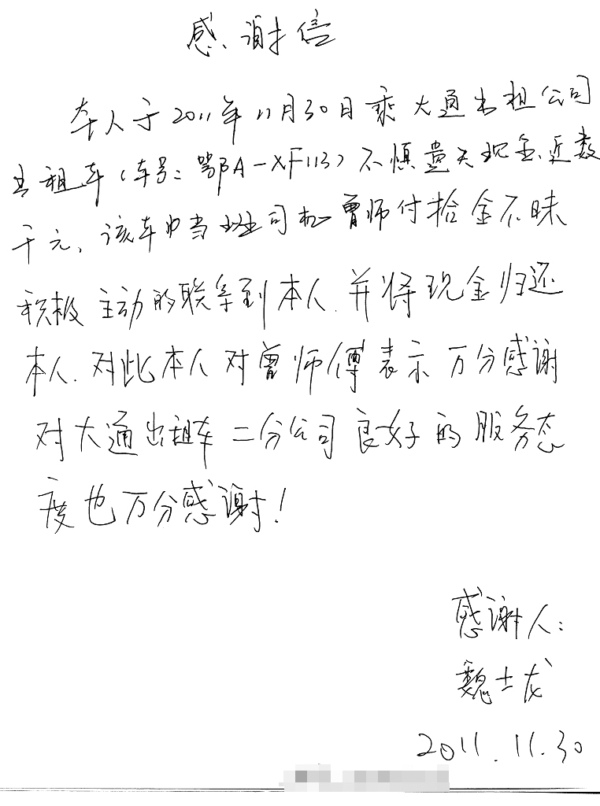 感谢信
本人于2011年11月30日乘大通出租公司
出租车(车号:鄂A-XF113)不慎遗失现金近数
千元、该车中当班司机曾师付拾金不昧
积极主动的联系到本人.并将现金归还
本人.对此本人对曾师傅表示万分感谢
对大通出租车二分公司良好的服务态
度也万分感谢!
感谢人:
魏士龙
2011.11.30